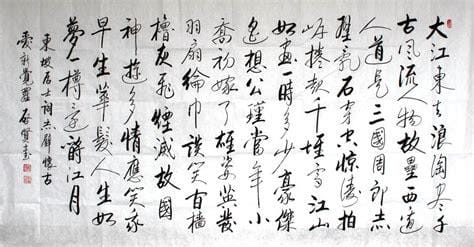 大江東去浪淘盡千
古風流人物故壘西邊
人道是三國周郎赤
壁亂石穿空驚濤拍
岸捲起千堆雪江山
如畫一時多少豪傑
遙想公瑾當年小
喬初嫁了雄姿英發
羽扇綸巾談笑間檣
櫓灰飛煙滅故國
神遊多情應笑我
早生華髮人生如
夢一樽還酹江月
東坡居士詞赤壁懷古
愛新覺羅